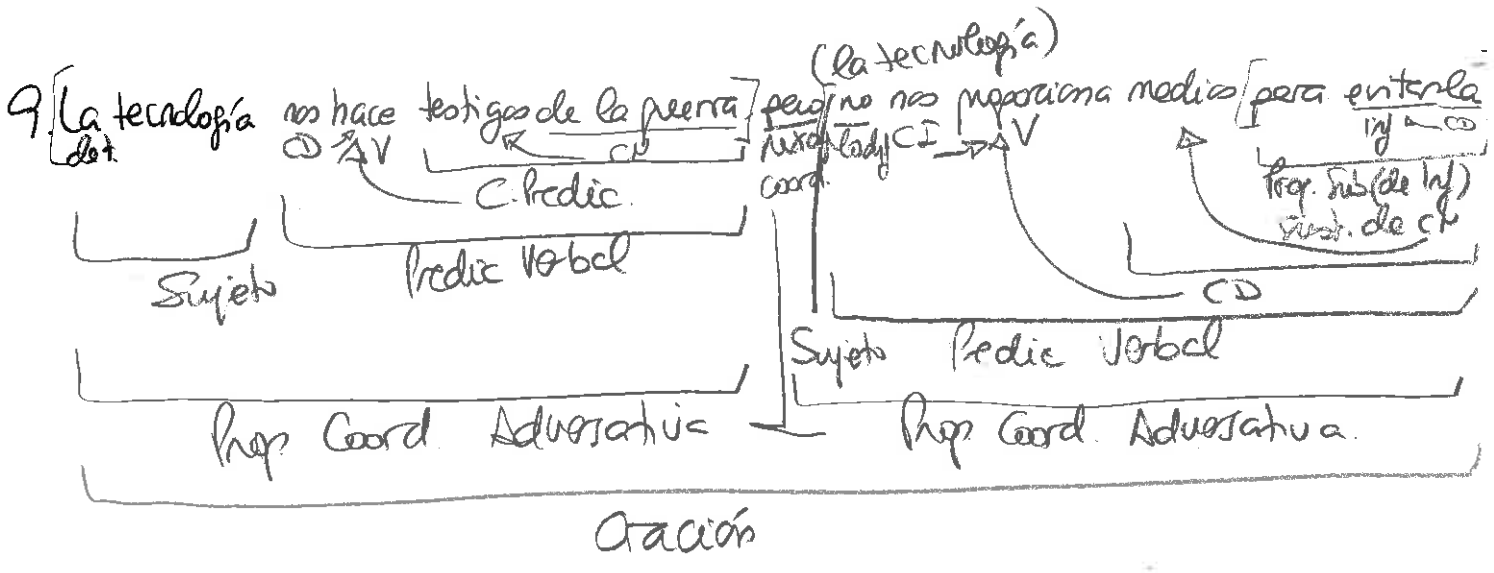 (la tecnología)
9. [La tecnología nos hace testigos de la guerra] pero [no nos proporciona medios [para evitarla
det. CD V CN nexo coord. (adv) CI V inf CD
C. Predic. Prop. Sub (de Inf)
sust. de CN
Sujeto Predic Verbal CD
Sujeto Predic Verbal
Prop. Coord. Adversativa Prop. Coord. Adversativa.
Oración